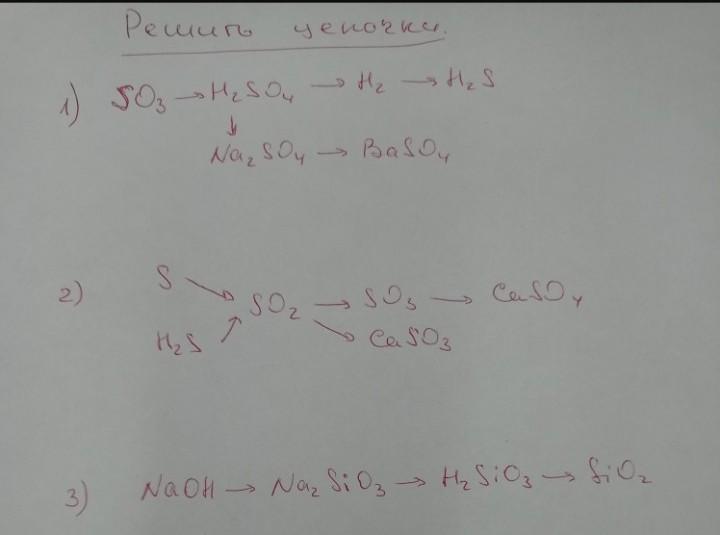 Решить цепочки.
1) SO3 → H2SO4 → H2 → H2S
↓
Na2SO4 → BaSO4
2) S ↘ SO2 → SO3 → CaSO4
H2S ↗ ↘ CaSO3
3) NaOH → Na2SiO3 → H2SiO3 → SiO2